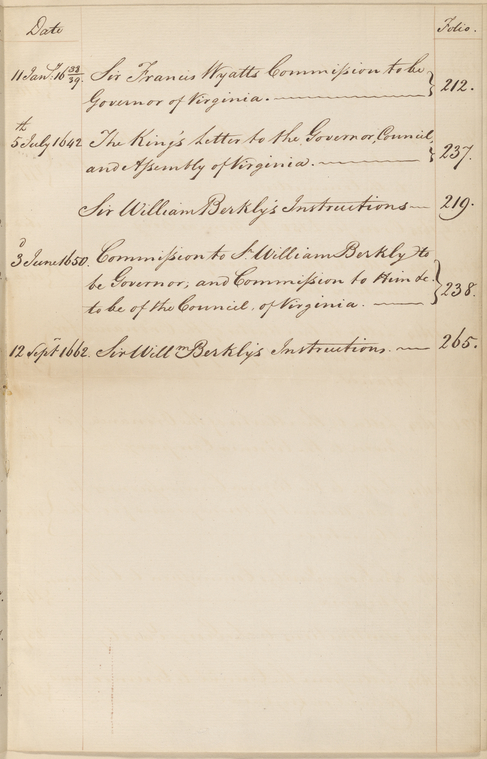 Date Folio.
11 Jany. 16 38/39. Sir Francis Wyatts Commission to be
Governor of Virginia. 212.
5th July 1642 The King's Letter to the Governor, Council,
and Assembly of Virginia. 237.
Sir William Berkly's Instructions 219.
3d June 1650. Commission to Sr William Berkly to
be Governor; and Commission to Him &c.
to be of the Council, of Virginia. 238.
12 Septr 1662. Sir Willm Berkly's Instructions. 265.